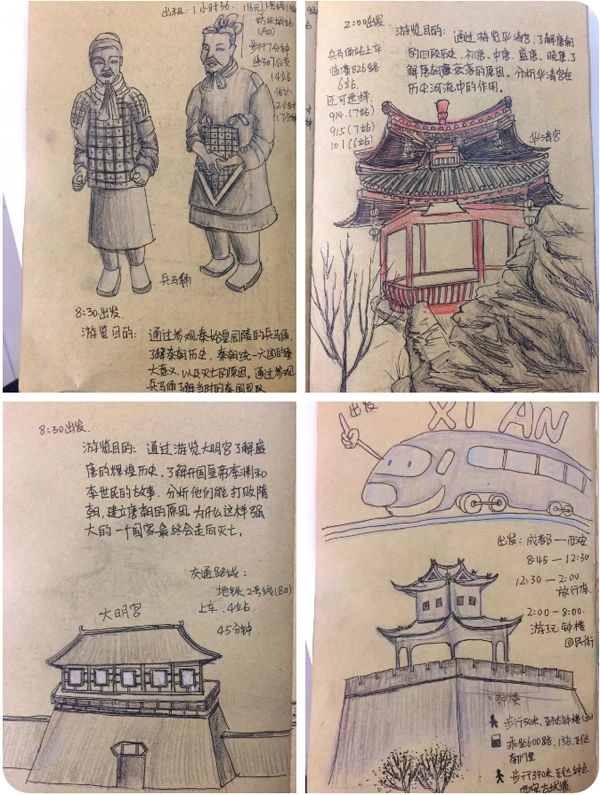 出租：1小时36 116元
步行7分钟
兵马俑
8:30出发
游览目的：通过参观秦始皇陵的兵马俑，
了解秦朝历史，秦朝统一六国的重
大意义，以及灭亡的原因。通过参观
兵马俑了解当时的秦国
2:00出发
游览目的：通过游览华清宫，了解唐朝
的四段历史，初唐、中唐、盛唐、晚唐，了
解唐朝衰落的原因，分析华清宫在
历史河流中的作用。
兵马俑站上车
临潼826路
6站
还可选择：
914（7站）
915（7站）
101（6站）
华清宫
8:30出发
游览目的：通过游览大明宫了解盛
唐的辉煌历史，了解开国皇帝李渊和
李世民的故事，分析他们能打败隋
朝，建立唐朝的原因，为什么这样强
大的一个国家最终会走向灭亡。
交通路线：
地铁2号线(B0)
上车 4站
45分钟
大明宫
出发
XI AN
出发：成都—西安
8:45—12:30
12:30—2:00
放行李
2:00—8:00
游玩钟楼
回民街
钟楼
步行50米，至达钟楼
乘坐600路，1站，至达
南门里
步行390米至达终点
西安古城墙